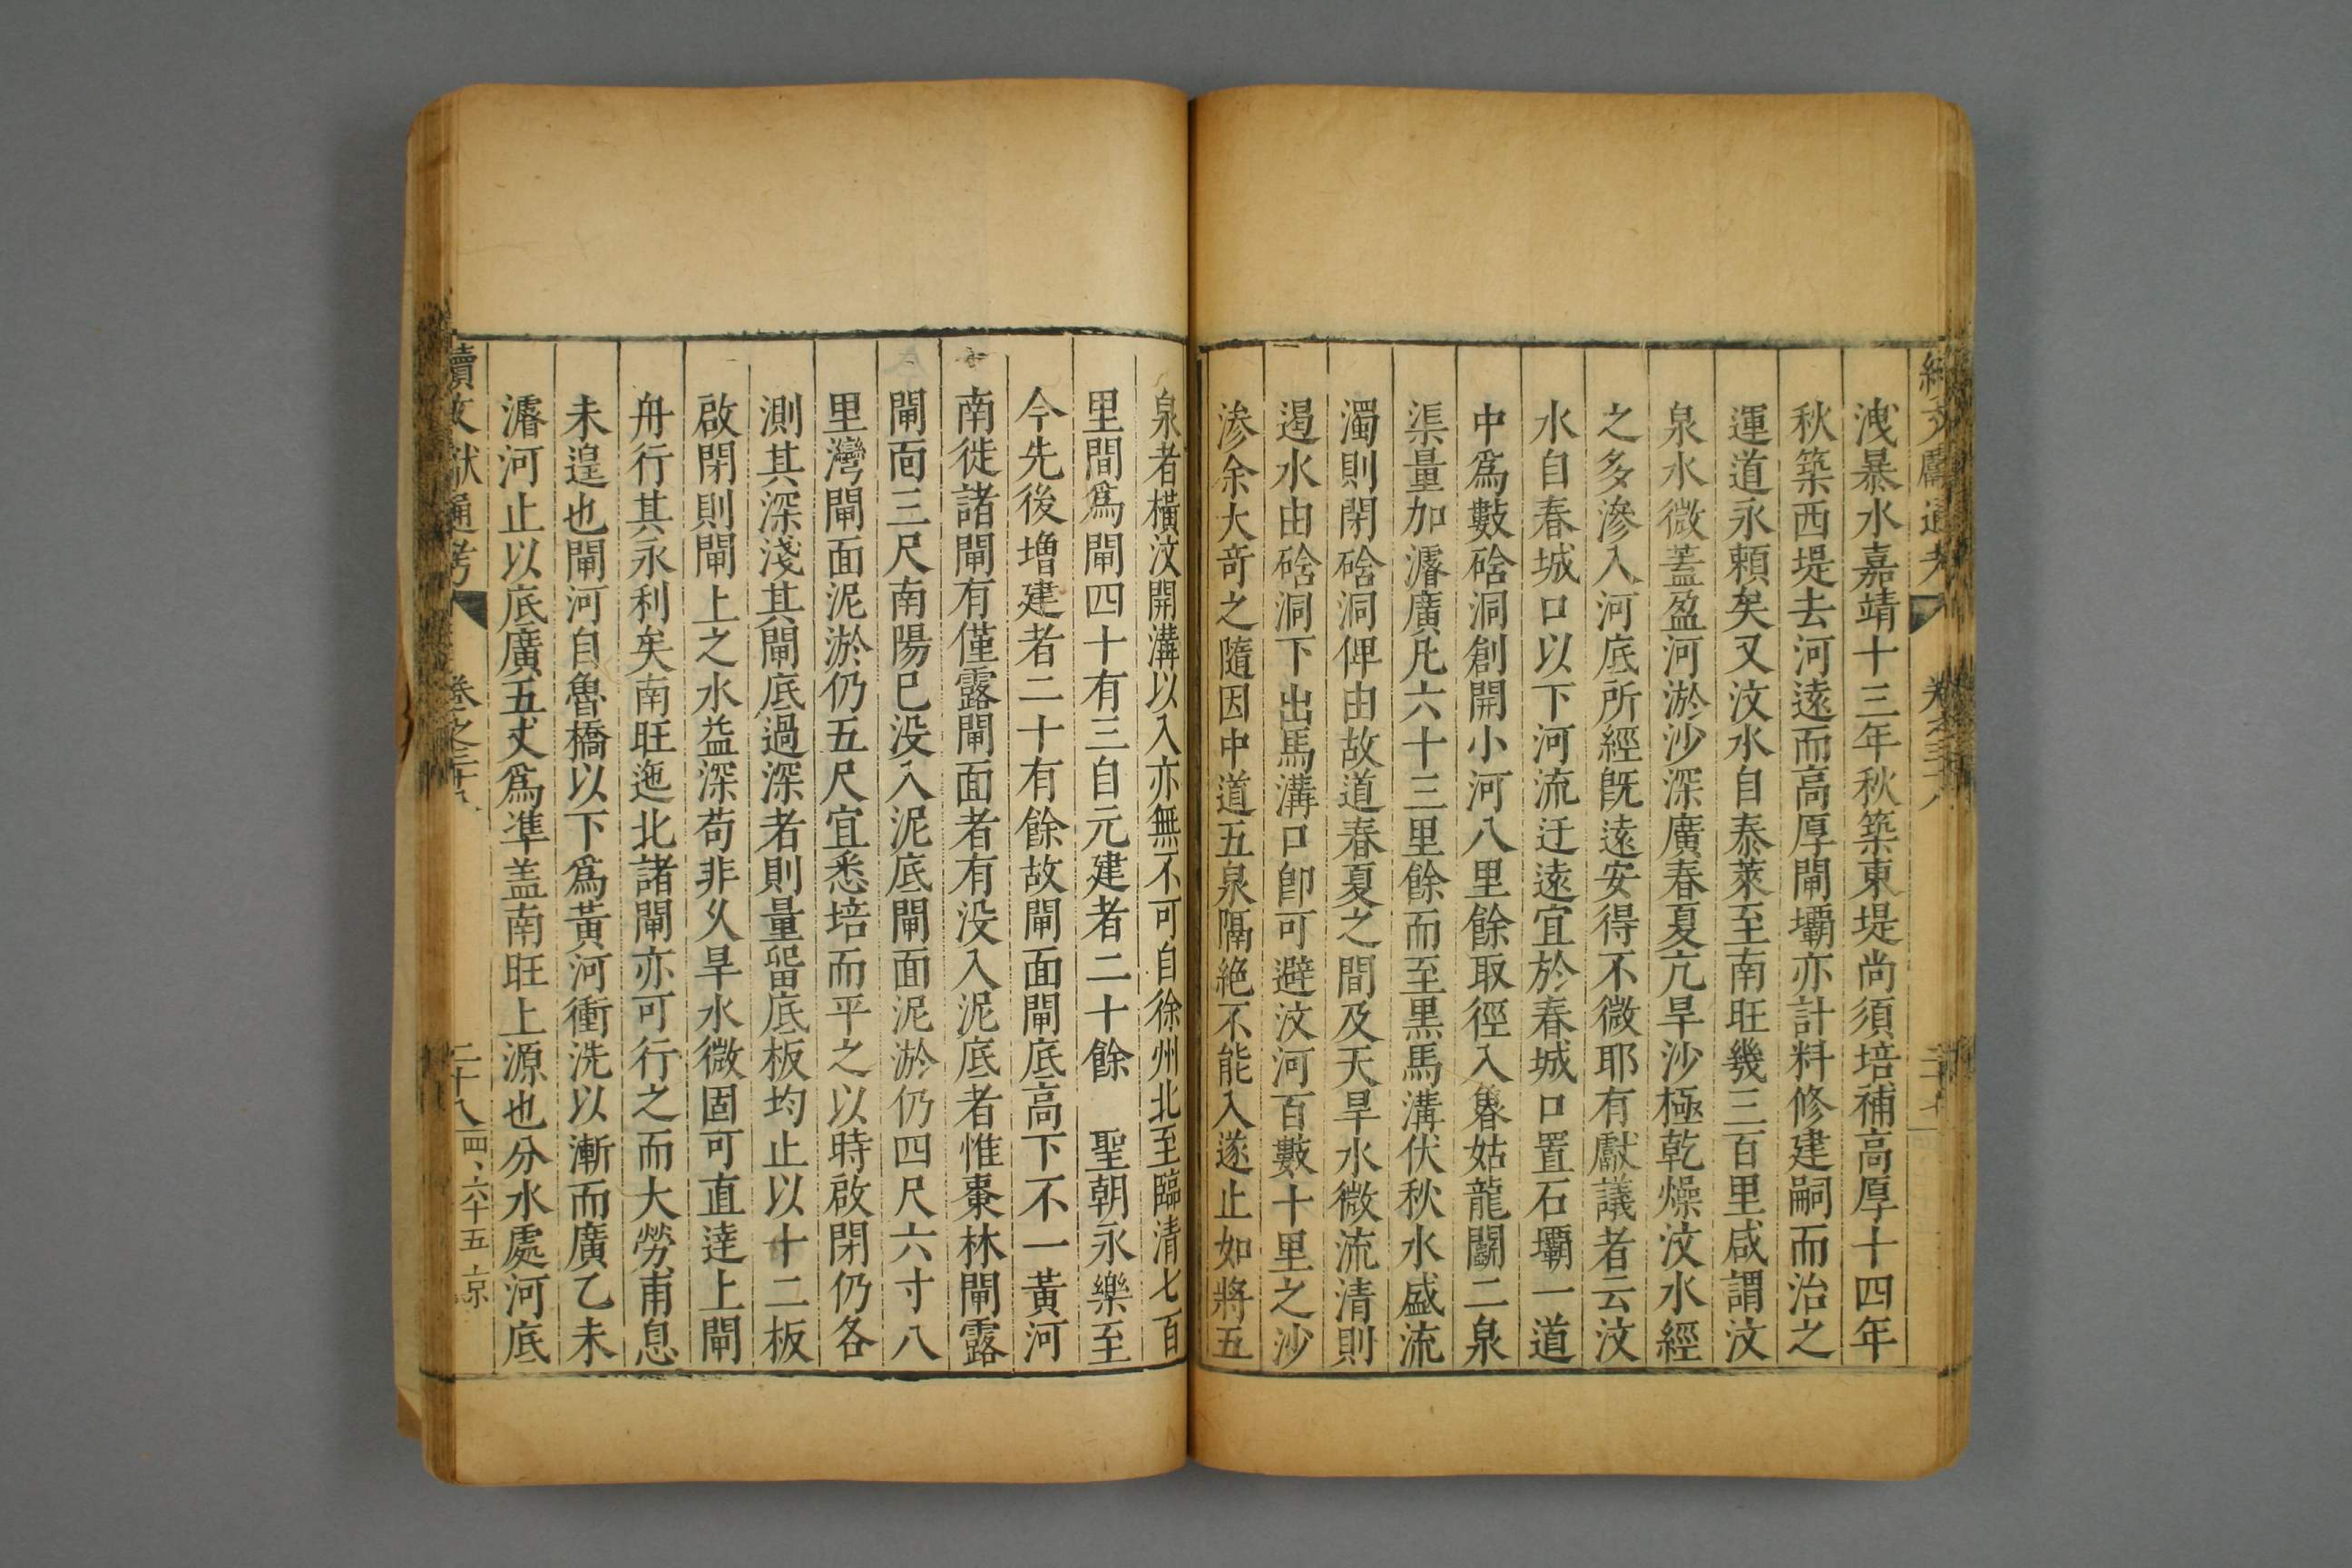 洩暴水嘉靖十三年秋築東堤尚須培補高厚十四年
秋築西堤去河遠而高厚閘壩亦計料修建嗣而治之
運道永賴矣又汶水自泰萊至南旺幾三百里咸謂汶
泉水微蓋盈河淤沙深廣春夏亢旱沙極乾燥汶水經
之多滲入河底所經既遠安得不微耶有獻議者云汶
水自春城口以下河流迂遠宜於春城口置石壩一道
中爲數硆洞創開小河八里餘取徑入魯姑龍鬬二泉
渠量加濬廣凡六十三里餘而至黑馬溝伏秋水盛流
濁則閉硆洞俾由故道春夏之間及天旱水微流清則
遏水由硆洞下出馬溝口卽可避汶河百數十里之沙
滲余大奇之隨因中道五泉隔絕不能入遂止如將五
泉者橫汶開溝以入亦無不可自徐州北至臨清七百
里間爲閘四十有三自元建者二十餘　聖朝永樂至
今先後增建者二十有餘故閘面閘底高下不一黃河
南徙諸閘有僅露閘面者有没入泥底者惟棗林閘露
閘面三尺南陽已没入泥底閘面泥淤仍四尺六寸八
里灣閘面泥淤仍五尺宜悉培而平之以時啟閉仍各
測其深淺其閘底過深者則量留底板均止以十二板
啟閉則閘上之水益深苟非久旱水微固可直達上閘
舟行其永利矣南旺迤北諸閘亦可行之而大勞甫息
未遑也閘河自魯橋以下爲黃河衝洗以漸而廣乙未
濬河止以底廣五丈爲凖盖南旺上源也分水處河底
續文獻通考
卷之三十八
二十八